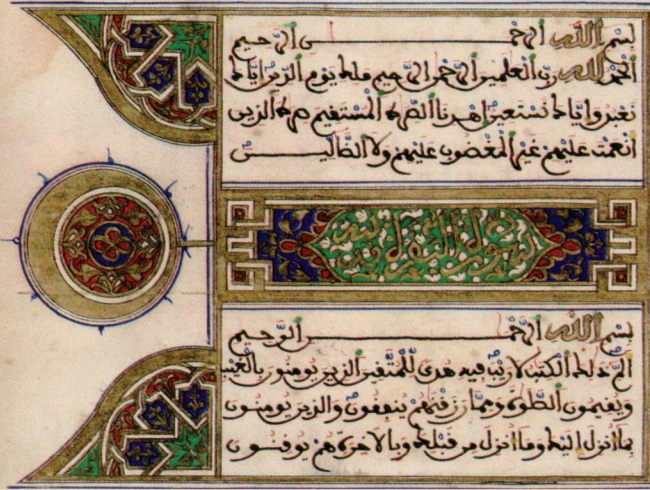 بسم الله الرحمن الرحيم
الحمد لله رب العلمين الرحمن الرحيم ملك يوم الدين إياك
نعبد وإياك نستعين اهدنا الصرط المستقيم صرط الذين
أنعمت عليهم غير المغضوب عليهم ولا الضالين
بسم الله الرحمن الرحيم
الم ذلك الكتب لا ريب فيه هدى للمتقين الذين يومنون بالغيب
ويقيمون الصلوة ومما رزقنهم ينفقون والذين يومنون
بما أنزل إليك وما أنزل من قبلك وبالاخرة هم يوقنون